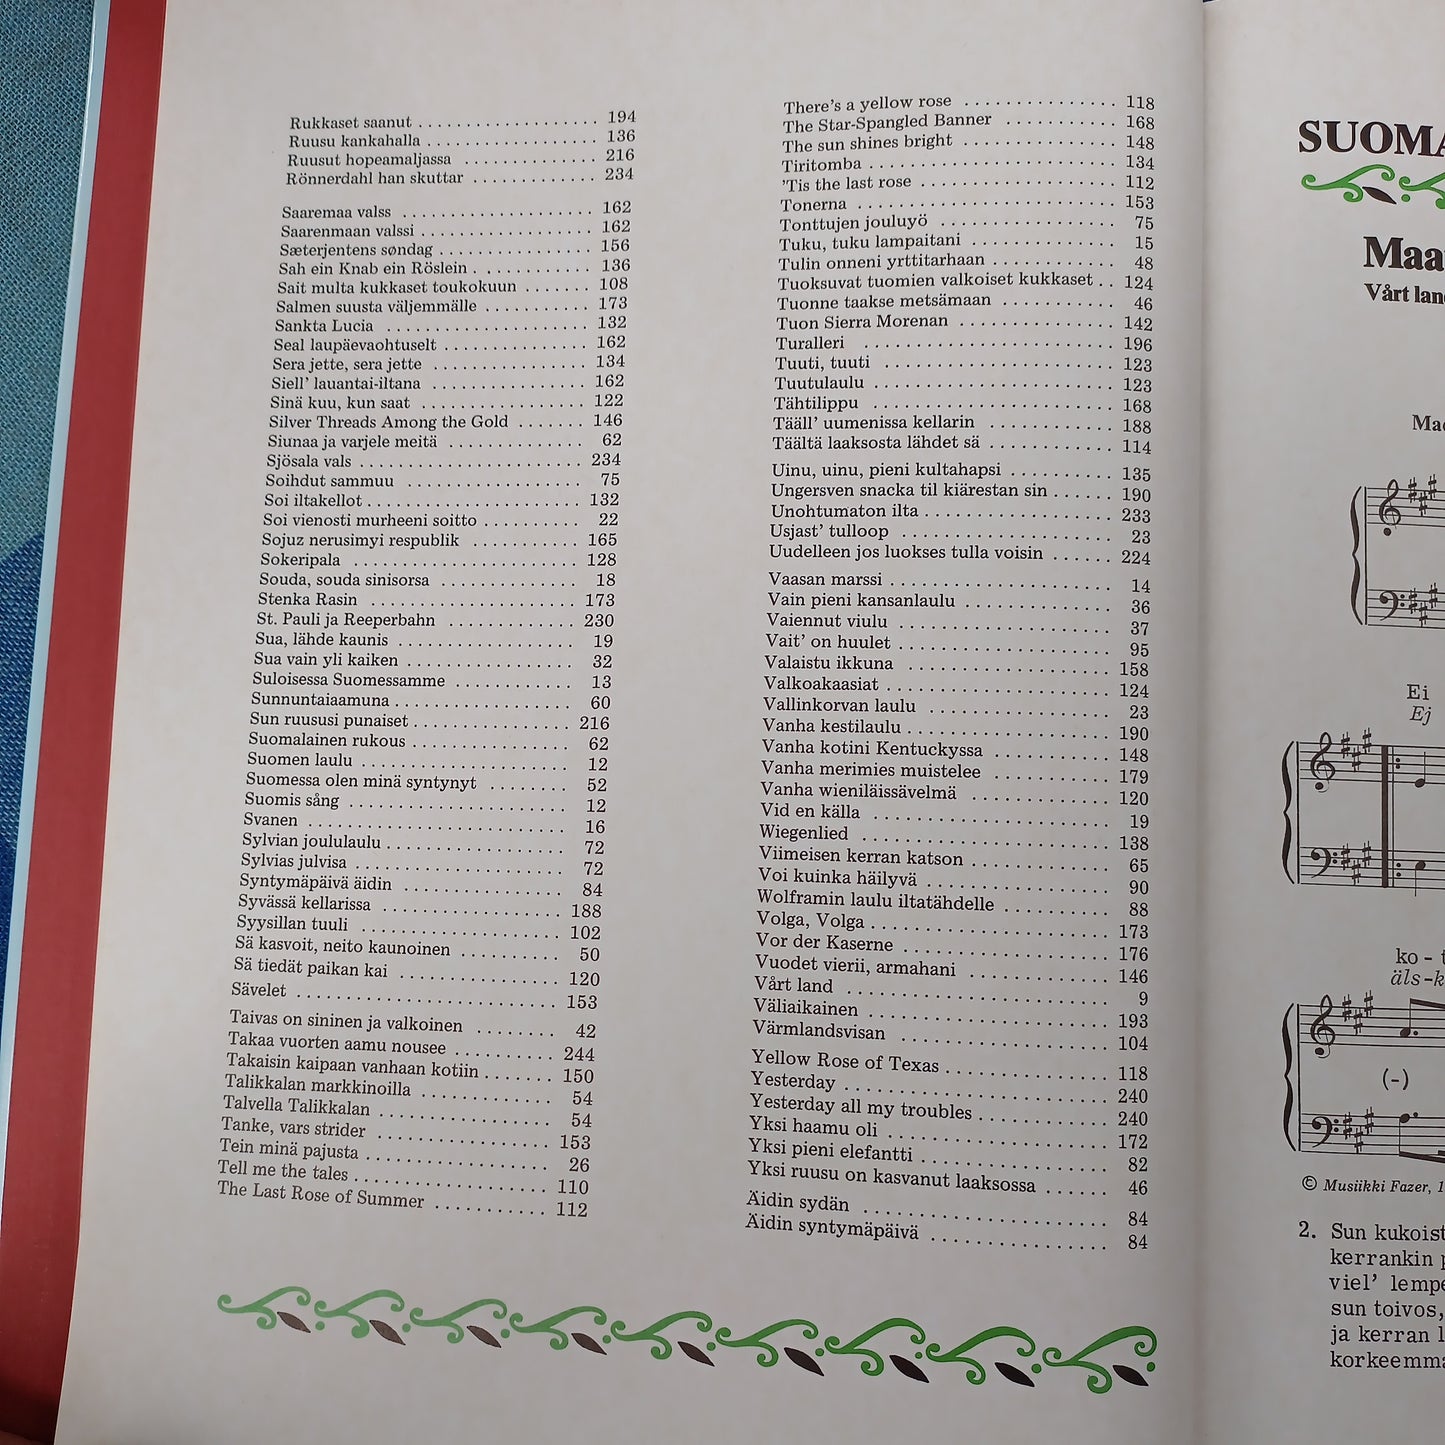 Rukkaset saanut . . . . . . . . . . . . . . . . . . . 194
Ruusu kankahalla . . . . . . . . . . . . . . . . . . 136
Ruusut hopeamaljassa . . . . . . . . . . . . . . 216
Rönnerdahl han skuttar . . . . . . . . . . . . . 234
Saaremaa valss . . . . . . . . . . . . . . . . . . . . 162
Saarenmaan valssi . . . . . . . . . . . . . . . . . . 162
Sæterjentens søndag . . . . . . . . . . . . . . . . 156
Sah ein Knab ein Röslein . . . . . . . . . . . . 136
Sait multa kukkaset toukokuun . . . . . . . 108
Salmen suusta väljemmälle . . . . . . . . . . . 173
Sankta Lucia . . . . . . . . . . . . . . . . . . . . . 132
Seal laupäevaohtuselt . . . . . . . . . . . . . . . 162
Sera jette, sera jette . . . . . . . . . . . . . . . . 134
Siell' lauantai-iltana . . . . . . . . . . . . . . . . 162
Sinä kuu, kun saat . . . . . . . . . . . . . . . . . 122
Silver Threads Among the Gold . . . . . . . 146
Siunaa ja varjele meitä . . . . . . . . . . . . . . 62
Sjösala vals . . . . . . . . . . . . . . . . . . . . . . . 234
Soihdut sammuu . . . . . . . . . . . . . . . . . . 75
Soi iltakellot . . . . . . . . . . . . . . . . . . . . . . 132
Soi vienosti murheeni soitto . . . . . . . . . . 22
Sojuz nerusimyi respublik . . . . . . . . . . . 165
Sokeripala . . . . . . . . . . . . . . . . . . . . . . . 128
Souda, souda sinisorsa . . . . . . . . . . . . . . 18
Stenka Rasin . . . . . . . . . . . . . . . . . . . . . 173
St. Pauli ja Reeperbahn . . . . . . . . . . . . . 230
Sua, lähde kaunis . . . . . . . . . . . . . . . . . . 19
Sua vain yli kaiken . . . . . . . . . . . . . . . . . 32
Suloisessa Suomessamme . . . . . . . . . . . . 13
Sunnuntaiaamuna . . . . . . . . . . . . . . . . . . 60
Sun ruususi punaiset . . . . . . . . . . . . . . . . 216
Suomalainen rukous . . . . . . . . . . . . . . . . 62
Suomen laulu . . . . . . . . . . . . . . . . . . . . . 12
Suomessa olen minä syntynyt . . . . . . . . 52
Suomis sång . . . . . . . . . . . . . . . . . . . . . . 12
Svanen . . . . . . . . . . . . . . . . . . . . . . . . . . 16
Sylvian joululaulu . . . . . . . . . . . . . . . . . . 72
Sylvias julvisa . . . . . . . . . . . . . . . . . . . . . 72
Syntymäpäivä äidin . . . . . . . . . . . . . . . . 84
Syvässä kellarissa . . . . . . . . . . . . . . . . . . 188
Syysillan tuuli . . . . . . . . . . . . . . . . . . . . 102
Sä kasvoit, neito kaunoinen . . . . . . . . . . 50
Sä tiedät paikan kai . . . . . . . . . . . . . . . . 120
Sävelet . . . . . . . . . . . . . . . . . . . . . . . . . . 153
Taivas on sininen ja valkoinen . . . . . . . . 42
Takaa vuorten aamu nousee . . . . . . . . . . 244
Takaisin kaipaan vanhaan kotiin . . . . . . . 150
Talikkalan markkinoilla . . . . . . . . . . . . . 54
Talvella Talikkalan . . . . . . . . . . . . . . . . . 54
Tanke, vars strider . . . . . . . . . . . . . . . . . 153
Tein minä pajusta . . . . . . . . . . . . . . . . . . 26
Tell me the tales . . . . . . . . . . . . . . . . . . . 110
The Last Rose of Summer . . . . . . . . . . . 112
There's a yellow rose . . . . . . . . . . . . . . . 118
The Star-Spangled Banner . . . . . . . . . . . 168
The sun shines bright . . . . . . . . . . . . . . . 148
Tiritomba . . . . . . . . . . . . . . . . . . . . . . . . 134
'Tis the last rose . . . . . . . . . . . . . . . . . . . 112
Tonerna . . . . . . . . . . . . . . . . . . . . . . . . . 153
Tonttujen jouluyö . . . . . . . . . . . . . . . . . 75
Tuku, tuku lampaitani . . . . . . . . . . . . . . 15
Tulin onneni yrttitarhaan . . . . . . . . . . . . 48
Tuoksuvat tuomien valkoiset kukkaset . . 124
Tuonne taakse metsämaan . . . . . . . . . . . 46
Tuon Sierra Morenan . . . . . . . . . . . . . . . 142
Turalleri . . . . . . . . . . . . . . . . . . . . . . . . 196
Tuuti, tuuti . . . . . . . . . . . . . . . . . . . . . . 123
Tuutulaulu . . . . . . . . . . . . . . . . . . . . . . . 123
Tähtilippu . . . . . . . . . . . . . . . . . . . . . . . 168
Tääll' uumenissa kellarin . . . . . . . . . . . . 188
Täältä laaksosta lähdet sä . . . . . . . . . . . . 114
Uinu, uinu, pieni kultahapsi . . . . . . . . . . 135
Ungersven snacka til kiärestan sin . . . . . . 190
Unohtumaton ilta . . . . . . . . . . . . . . . . . . 233
Usjast' tulloop . . . . . . . . . . . . . . . . . . . . 23
Uudelleen jos luokses tulla voisin . . . . . . 224
Vaasan marssi . . . . . . . . . . . . . . . . . . . . . 14
Vain pieni kansanlaulu . . . . . . . . . . . . . . 36
Vaiennut viulu . . . . . . . . . . . . . . . . . . . . 37
Vait' on huulet . . . . . . . . . . . . . . . . . . . . 95
Valaistu ikkuna . . . . . . . . . . . . . . . . . . . 158
Valkoakaasiat . . . . . . . . . . . . . . . . . . . . . 124
Vallinkorvan laulu . . . . . . . . . . . . . . . . . 23
Vanha kestilaulu . . . . . . . . . . . . . . . . . . . 190
Vanha kotini Kentuckyssa . . . . . . . . . . . 148
Vanha merimies muistelee . . . . . . . . . . . 179
Vanha wieniläissävelmä . . . . . . . . . . . . . 120
Vid en källa . . . . . . . . . . . . . . . . . . . . . . 19
Wiegenlied . . . . . . . . . . . . . . . . . . . . . . . 138
Viimeisen kerran katson . . . . . . . . . . . . . 65
Voi kuinka häilyvä . . . . . . . . . . . . . . . . . 90
Wolframin laulu iltatähdelle . . . . . . . . . . 88
Volga, Volga . . . . . . . . . . . . . . . . . . . . . . 173
Vor der Kaserne . . . . . . . . . . . . . . . . . . . 176
Vuodet vierii, armahani . . . . . . . . . . . . . 146
Vårt land . . . . . . . . . . . . . . . . . . . . . . . . 9
Väliaikainen . . . . . . . . . . . . . . . . . . . . . . 193
Värmlandsvisan . . . . . . . . . . . . . . . . . . . 104
Yellow Rose of Texas . . . . . . . . . . . . . . . 118
Yesterday . . . . . . . . . . . . . . . . . . . . . . . . 240
Yesterday all my troubles . . . . . . . . . . . . 240
Yksi haamu oli . . . . . . . . . . . . . . . . . . . . 172
Yksi pieni elefantti . . . . . . . . . . . . . . . . . 82
Yksi ruusu on kasvanut laaksossa . . . . . . 46
Äidin sydän . . . . . . . . . . . . . . . . . . . . . . 84
Äidin syntymäpäivä . . . . . . . . . . . . . . . . 84
SUOMA
Maa
Vårt lan
Ei
Ej
ko -
äls-k
(-)
© Musiikki Fazer, 1
2. Sun kukoist
kerrankin
viel' lempe
sun toivos,
ja kerran l
korkeemma